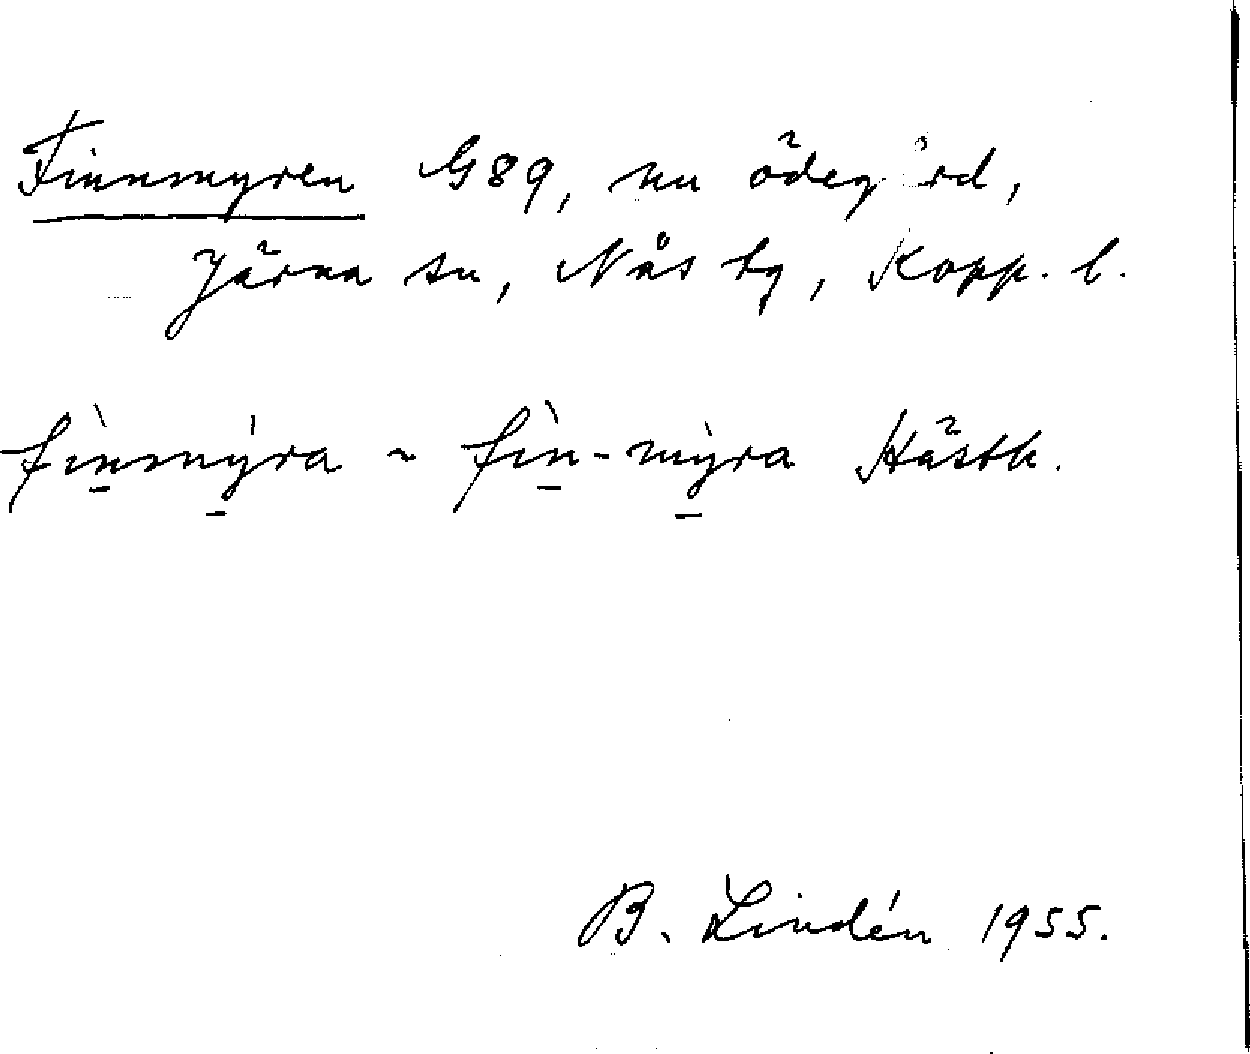 Finnmyren G89, nu ödegård,
Järna sn, Nås tg, Kopp. l.
fìn̠mỳ̠ra ~ fìn̠-mỳ̠ra Hästb.
B. Lindén 1955.